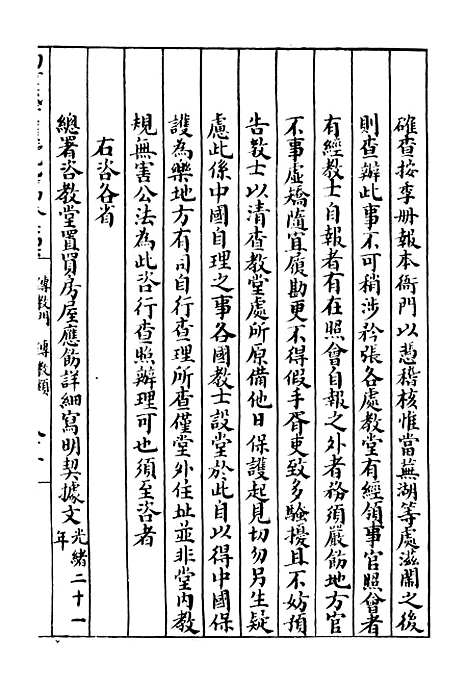 確查按季册報本衙門以憑稽核惟當蕪湖等處滋鬧之後
則查辦此事不可稍涉矜張各處教堂有經領事官照會者
有經教士自報者有在照會自報之外者務須嚴飭地方官
不事虛矯隨宜履勘更不得假手胥吏致多騷擾且不妨預
告教士以清查教堂處所原備他日保護起見切勿另生疑
慮此係中國自理之事各國教士設堂於此自以得中國保
護為樂地方有司自行查理所查僅堂外住址並非堂內教
規無害公法為此咨行查照辦理可也須至咨者
右咨各省
總署咨教堂置買房屋應飭詳細寫明契據文光緒二十一年
傳教門 傳教類